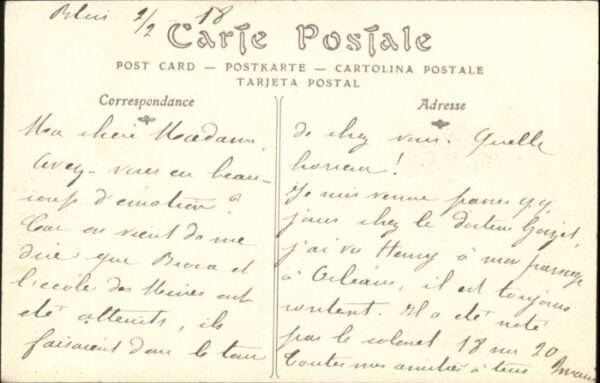 Blois 2/2 18
Carte Postale
POST CARD — POSTKARTE — CARTOLINA POSTALE
TARJETA POSTAL
Correspondance
Ma chère Madame,
Avez-vous eu beau-
coup d'émotion ?
Car on vient de me
dire que Broca et
l'école des Mines ont
été atteints, ils
faisaient donc le tour
Adresse
de chez vous. Quelle
horreur !
Je suis venue passer qq
jours chez le docteur
j'ai vu Henry à mon passage
à Orléans, il est toujours
content. Il a été noté
par le colonel 18 sur 20
Toutes mes amitiés à tous